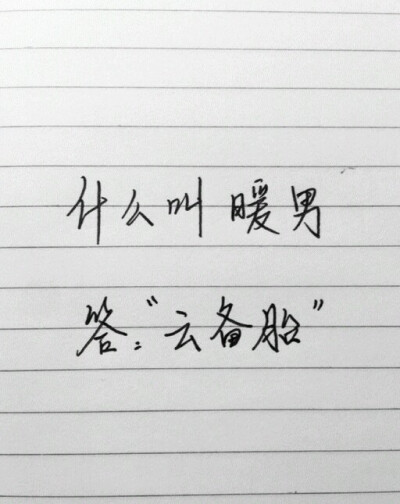 什么叫暖男
答:“云备胎”